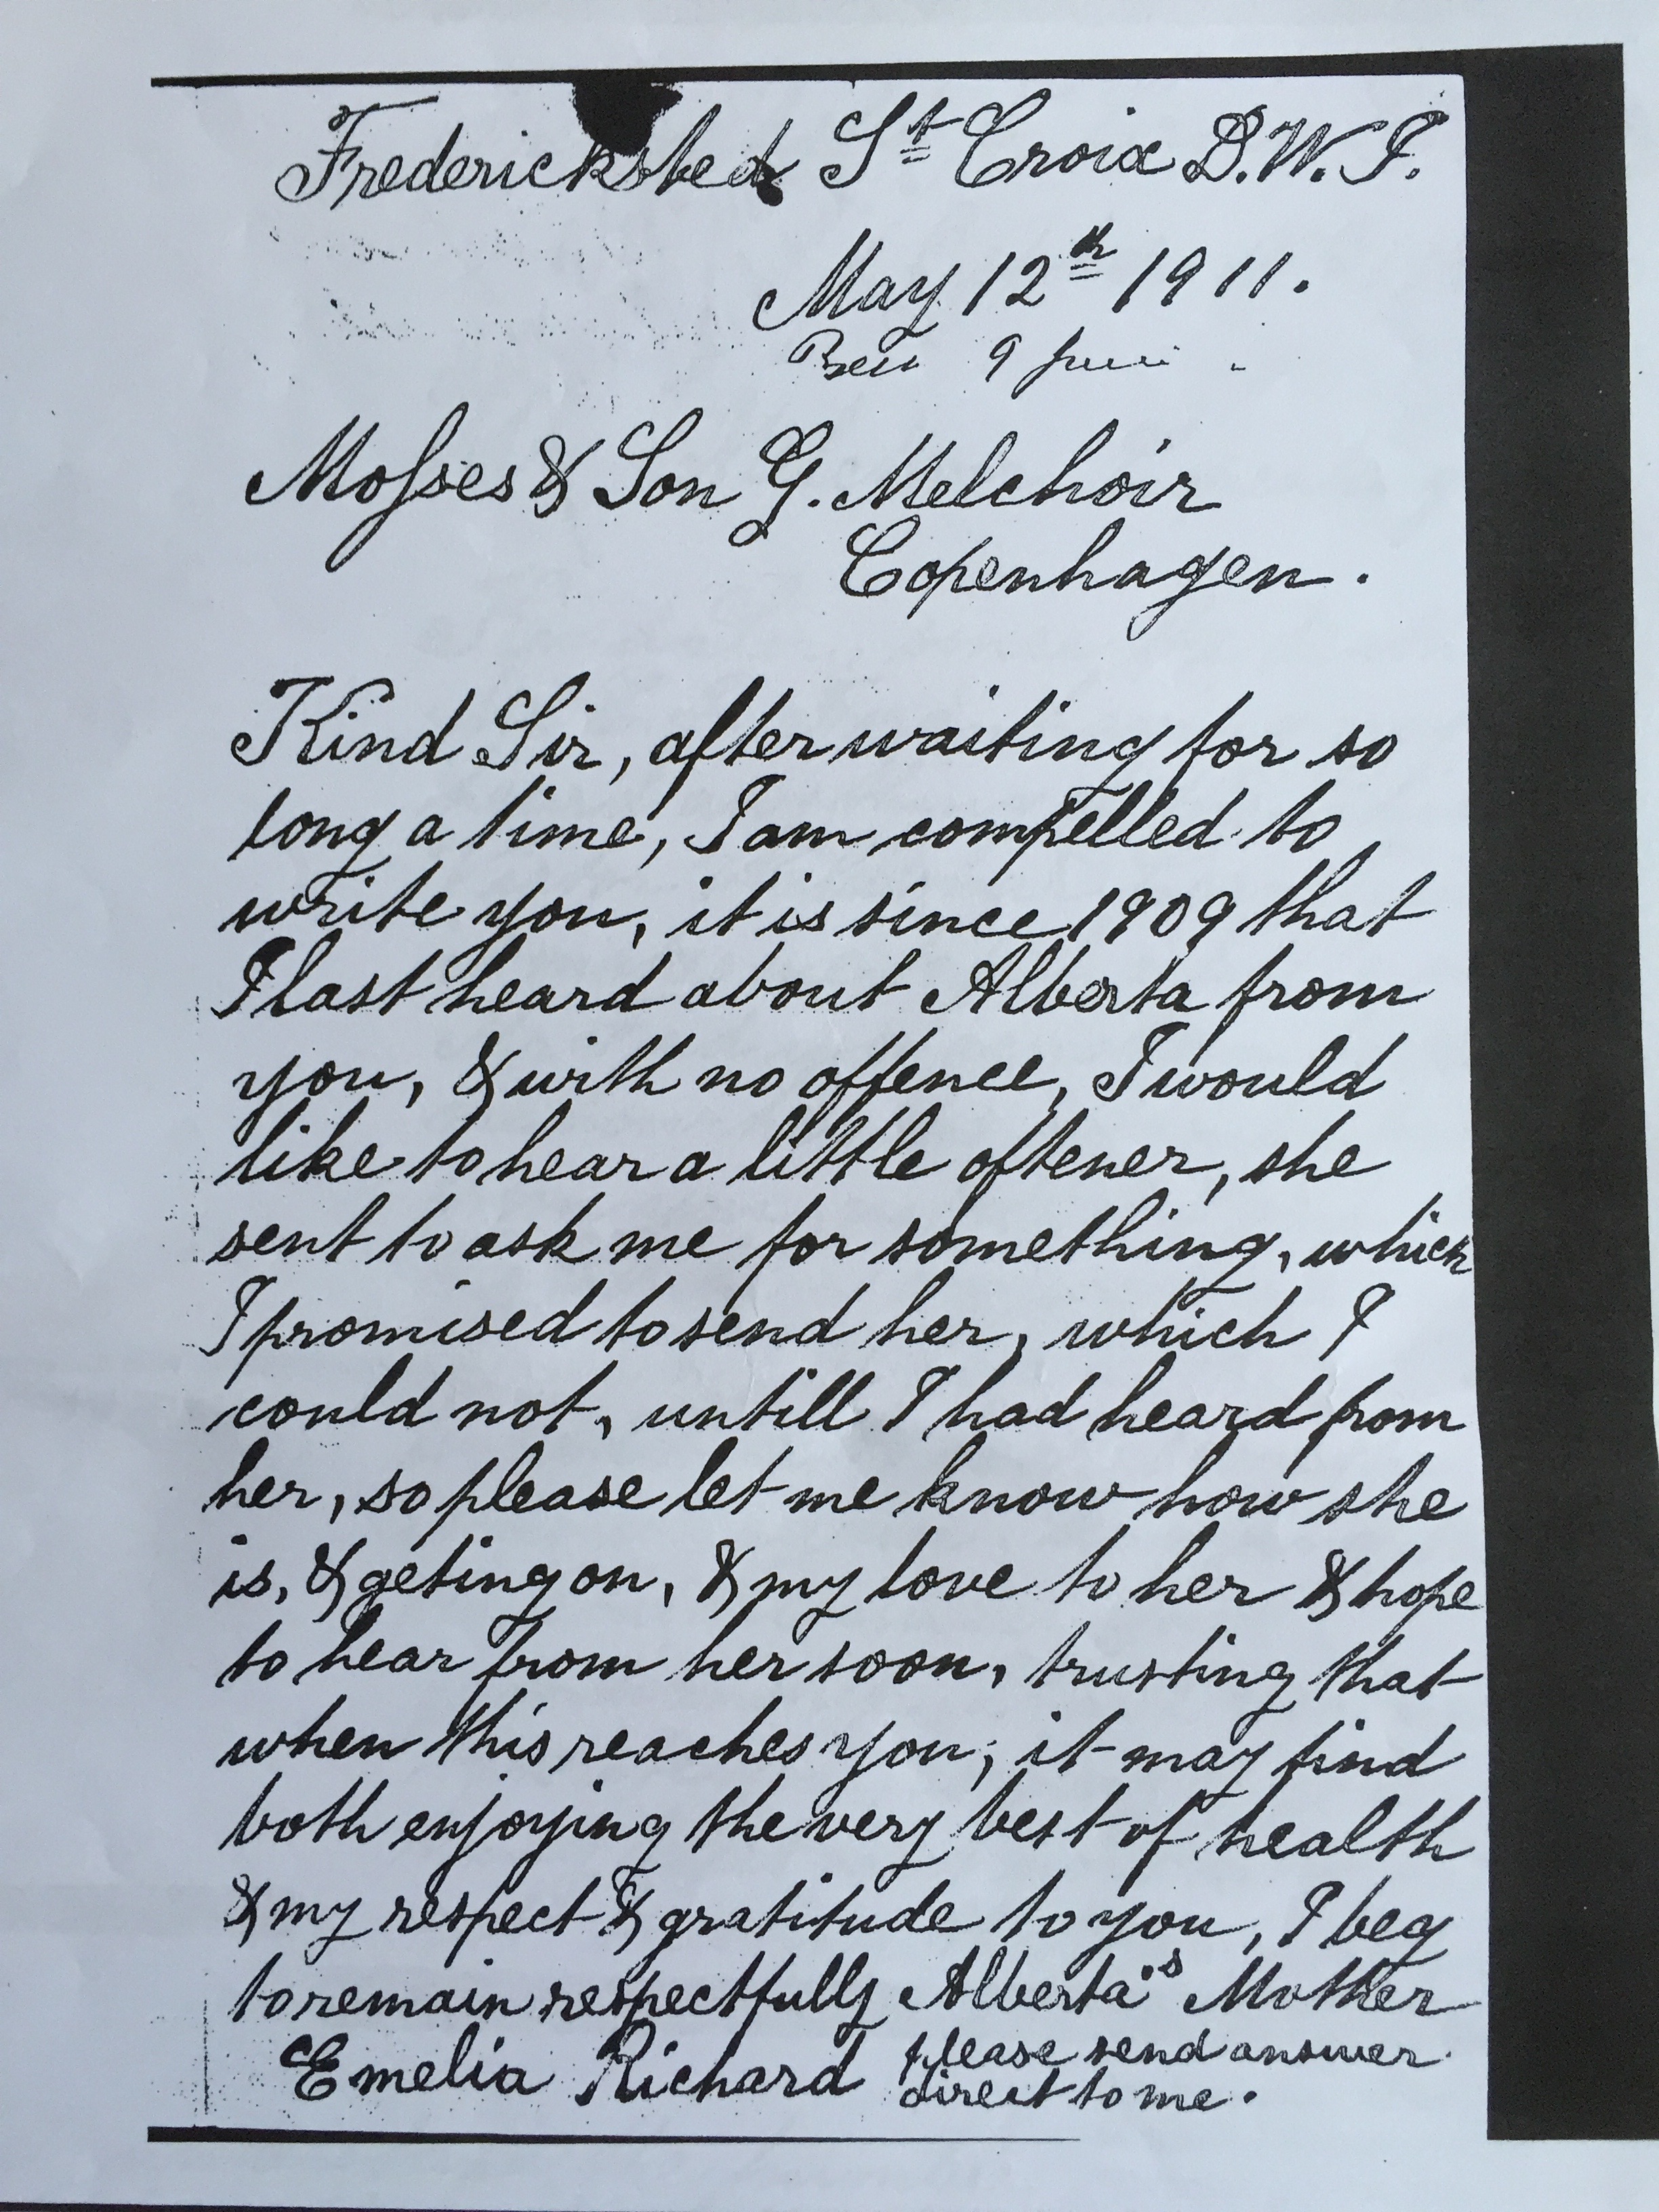 Fredericksted St Croix D.W.I.
May 12th 1911.
9 Juni
Mosses & Son G. Melchoir
Copenhagen.
Kind Sir, after waiting for so
long a time, I am compelled to
write you, it is since 1909 that
I last heard about Alberta from
you, & with no offence, I would
like to hear a little oftener, she
sent to ask me for something, which
I promised to send her, which I
could not, untill I had heard from
her, so please let me know how she
is, & geting on, & my love to her & hope
to hear from her soon, trusting that
when this reaches you, it may find
both enjoying the very best of health
& my respect & gratitude to you, I beg
to remain respectfully Alberta's Mother
Emelia Richard please send answer
direct to me.